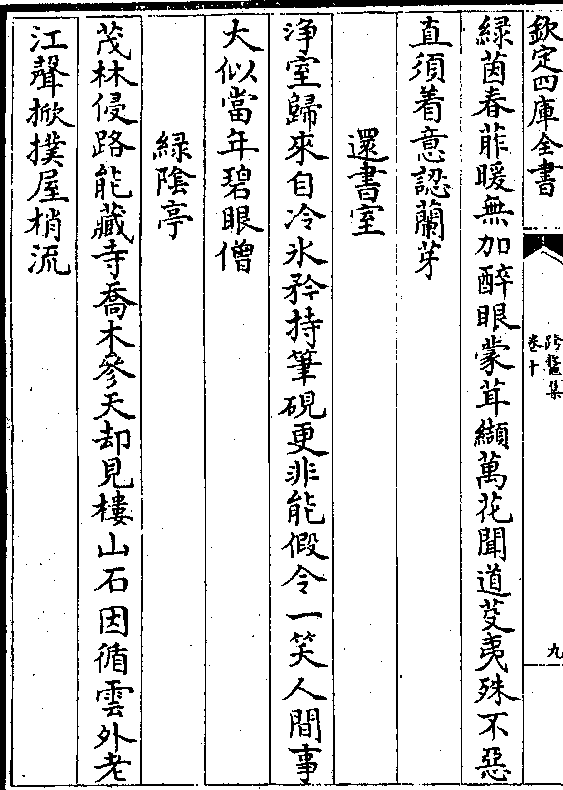 欽定四庫全書
跨鼇集
卷十
九
緑茵春菲暖無加醉眼蒙茸纈萬花聞道芟夷殊不惡
直須着意認蘭芽
還書室
浄室歸來自冷氷矜持筆硯更非能假令一笑人間事
大似當年碧眼僧
緑陰亭
茂林侵路能藏寺喬木參天却見樓山石因循雲外老
江聲掀撲屋梢流